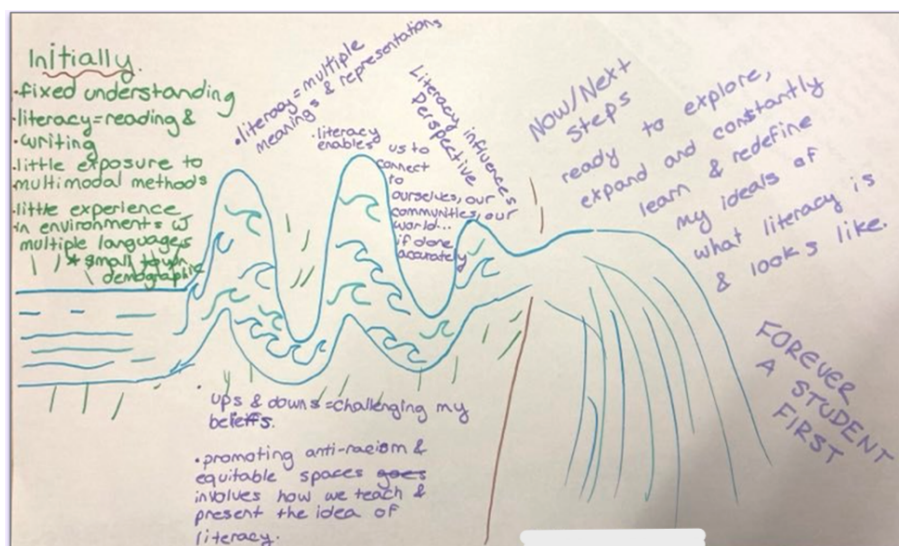 Initially.
·fixed understanding
·literacy=reading &
·writing
·little exposure to
multimodal methods
·little experience
in environments w/
multiple languages
* small town
demographic
·literacy=multiple
meanings & representations
·literacy
enables us to
connect
to
ourselves, our
communities, our
world...
if done
accurately
Literacy influence's
perspective
NOW/Next
Steps
ready to explore,
expand and constantly
learn & redefine
my ideals of
what literacy is
& looks like.
FOREVER
A STUDENT
FIRST
·
ups & downs=challenging my
beliefs.
·promoting anti-racism &
equitable spaces goes
involves how we teach &
present the idea of
literacy.